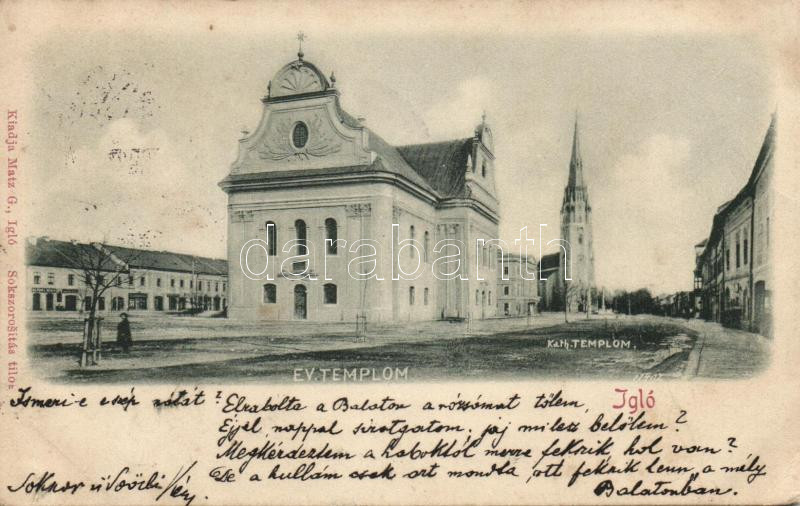 Kiadja Matz G., Igló Sokszorosítás tilos
darabanth.com
EV. TEMPLOM
Kath. TEMPLOM.
Igló
Ismeri-e e szép nótát?
Elrabolta a Balaton a rózsámat tőlem,
Éjjel nappal siratgatom, jaj mi lesz belőlem?
Megkérdeztem a haboktól merre fekszik, hol van?
De a hullám csak azt mondta, ott fekszik lenn, a mély
Balatonban.
Sokszor